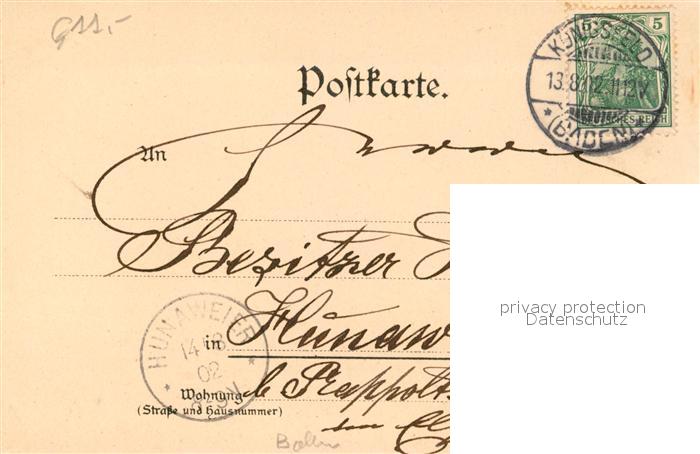 G 11.-
5 5
KÖNIGSFELD
13.8.02.11-12V.
DEUTSCHES REICH
* (BADEN) *
Poſtkarte.
An
Besitzer
privacy protection
Datenschutz
HUNAWEIER
14 8
02
in Hunaw
Wohnung b Rappolts
(Straße und Hausnummer)
im El